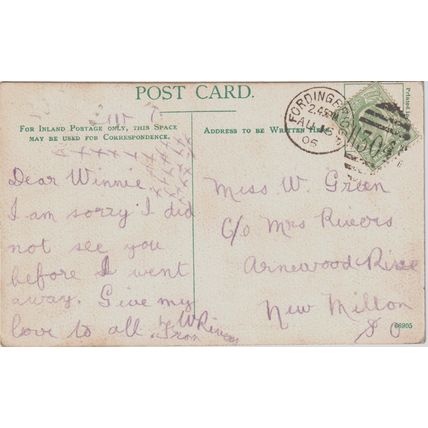 POST CARD.
FOR INLAND POSTAGE ONLY, THIS SPACE
MAY BE USED FOR CORRESPONDENCE.
ADDRESS TO BE WRITTEN HERE.
Printed in
2.45
AU 15
06
I304
Dear Winnie
I am sorry I did
not see you
before I went
away. Give my
love to all
From W Rivers
Miss W. Green
C/o Mrs Rivers
Arnewood Rise
New Milton
66905